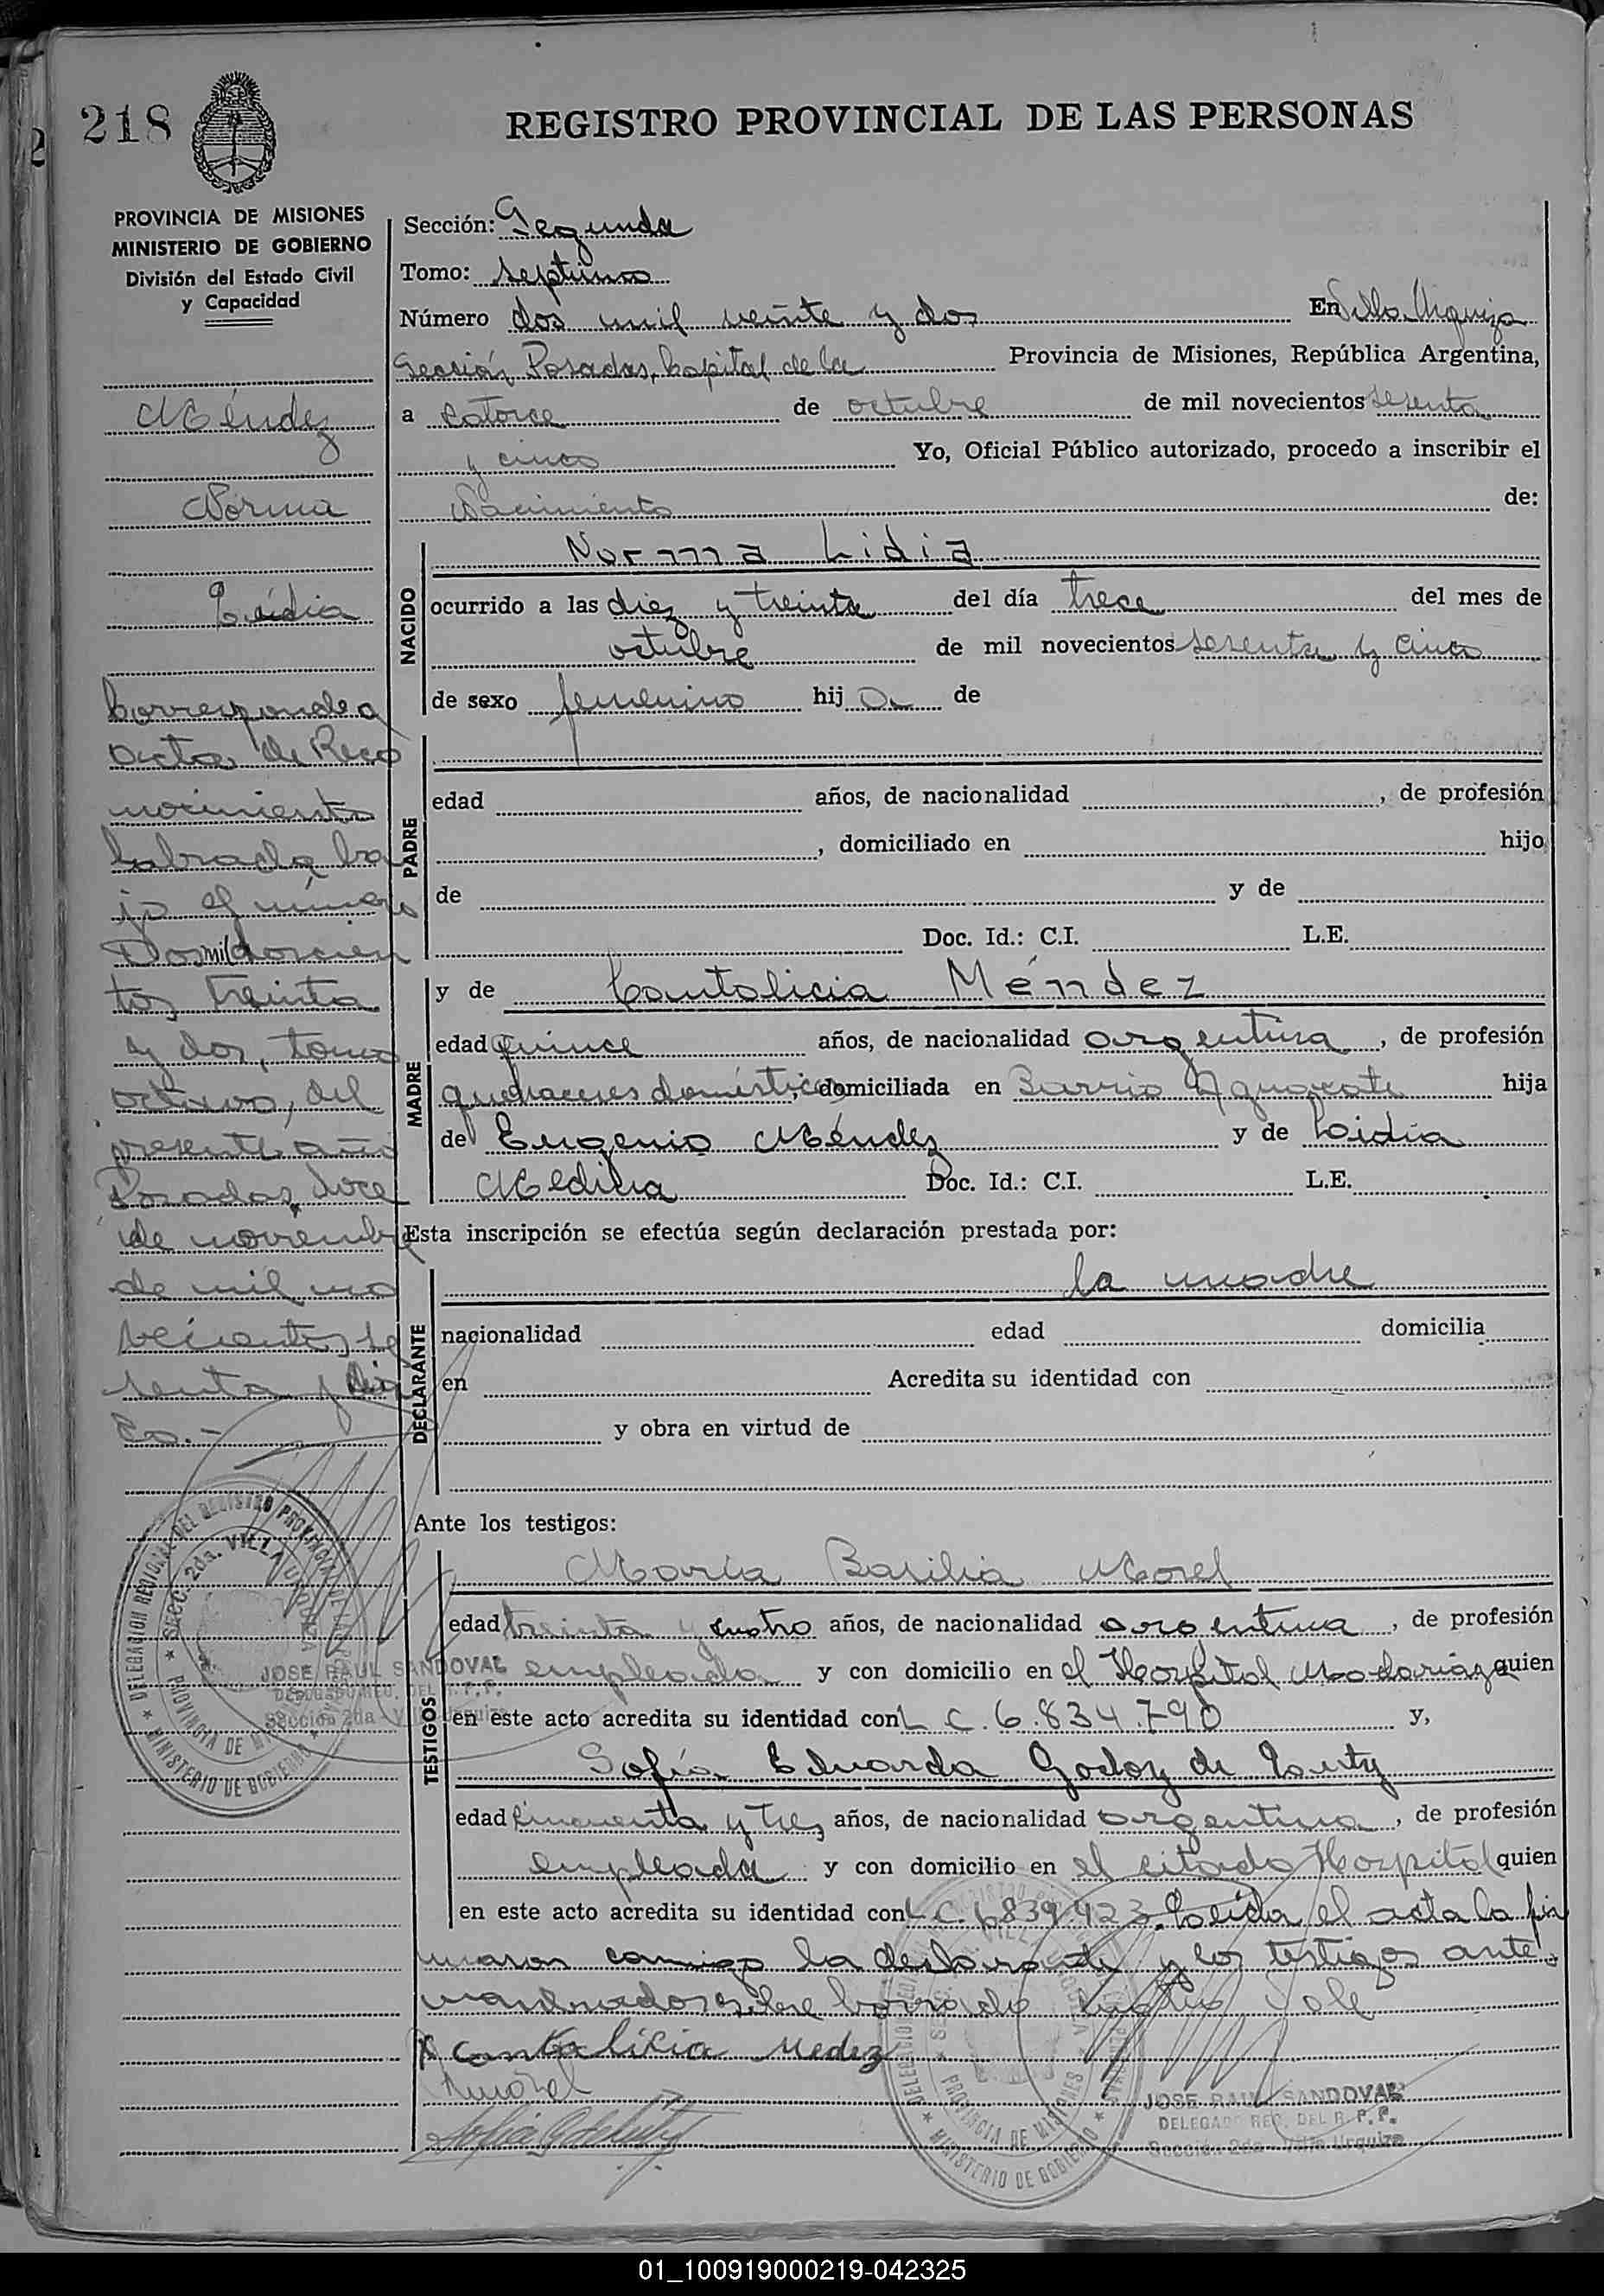 218
REGISTRO PROVINCIAL DE LAS PERSONAS
PROVINCIA DE MISIONES
MINISTERIO DE GOBIERNO
División del Estado Civil
y Capacidad
Méndez
Norma
Lidia
Corresponde a
acta de Reco
nocimiento
labrada ba
jo el número
Dos mil doscien
tos treinta
y dos, tomo
octavo, del
presente año
Posadas, doce
de noviembre
de mil no
vecientos se
senta y cin
co.-
Sección: Segunda
Tomo: septimo
Número dos mil veinte y dos En Villa Urquiza
Sección Posadas, Capital de la Provincia de Misiones, República Argentina,
a catorce de octubre de mil novecientos sesenta
y cinco Yo, Oficial Público autorizado, procedo a inscribir el
Nacimiento de:
NACIDO
Norma Lidia
ocurrido a las diez y treinta del día trece del mes de
octubre de mil novecientos sesenta y cinco
de sexo femenino hija de
PADRE
edad años, de nacionalidad , de profesión
, domiciliado en hijo
de y de
Doc. Id.: C.I. L.E.
MADRE
y de Cantalicia Méndez
edad quince años, de nacionalidad argentina, de profesión
quehaceres domésticos, domiciliada en Barrio Aguacate hija
de Eugenio Méndez y de Lidia
Medina Doc. Id.: C.I. L.E.
Esta inscripción se efectúa según declaración prestada por:
DECLARANTE
la madre
nacionalidad edad domicilia
en Acredita su identidad con
y obra en virtud de
Ante los testigos:
TESTIGOS
María Basilia Morel
edad treinta y cuatro años, de nacionalidad argentina, de profesión
empleada y con domicilio en el Hospital Madariaga quien
en este acto acredita su identidad con L C. 6.834.790 y,
Sofía Eduarda Godoy de
edad cincuenta y tres años, de nacionalidad argentina, de profesión
empleada y con domicilio en el citado Hospital quien
en este acto acredita su identidad con L C. 6839.923. Leída el acta la fir
maron conmigo la declarante y los testigos ante
mencionados sobre borrado cuatro Vale
x Cantalicia Medez
DELEGACION REGIONAL DEL REGISTRO PROVINCIAL DE LAS PERSONAS
SECC. 2da. VILLA URQUIZA
PROVINCIA DE MISIONES
MINISTERIO DE GOBIERNO
JOSE RAUL SANDOVAL
DELEGADO REG. DEL R.P.P.
Sección 2da - Villa Urquiza
JOSE RAUL SANDOVAL
DELEGADO REG. DEL R.P.P.
Sección 2da - Villa Urquiza
01_100919000219-042325